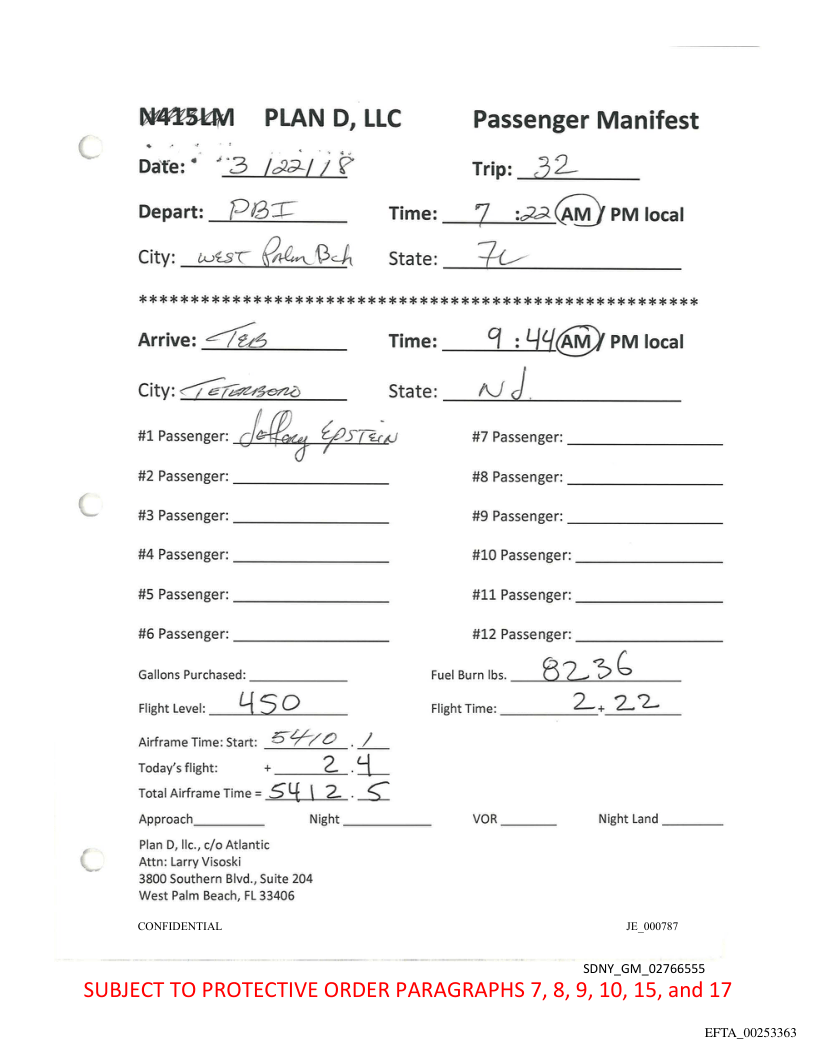 N415LM PLAN D, LLC Passenger Manifest
Date: 3/22/18 Trip: 32
Depart: PBI Time: 7 :22 AM / PM local
City: WEST Palm Bch State: FL
******************************************************
Arrive: TEB Time: 9 : 44 AM / PM local
City: TETERBORO State: NJ.
#1 Passenger: Jeffrey EPSTEIN #7 Passenger:
#2 Passenger: #8 Passenger:
#3 Passenger: #9 Passenger:
#4 Passenger: #10 Passenger:
#5 Passenger: #11 Passenger:
#6 Passenger: #12 Passenger:
Gallons Purchased: Fuel Burn lbs. 8236
Flight Level: 450 Flight Time: 2 + 22
Airframe Time: Start: 5410 . 1
Today's flight: + 2 . 4
Total Airframe Time = 5412 . 5
Approach Night VOR Night Land
Plan D, llc., c/o Atlantic
Attn: Larry Visoski
3800 Southern Blvd., Suite 204
West Palm Beach, FL 33406
CONFIDENTIAL JE_000787
SDNY_GM_02766555
SUBJECT TO PROTECTIVE ORDER PARAGRAPHS 7, 8, 9, 10, 15, and 17
EFTA_00253363